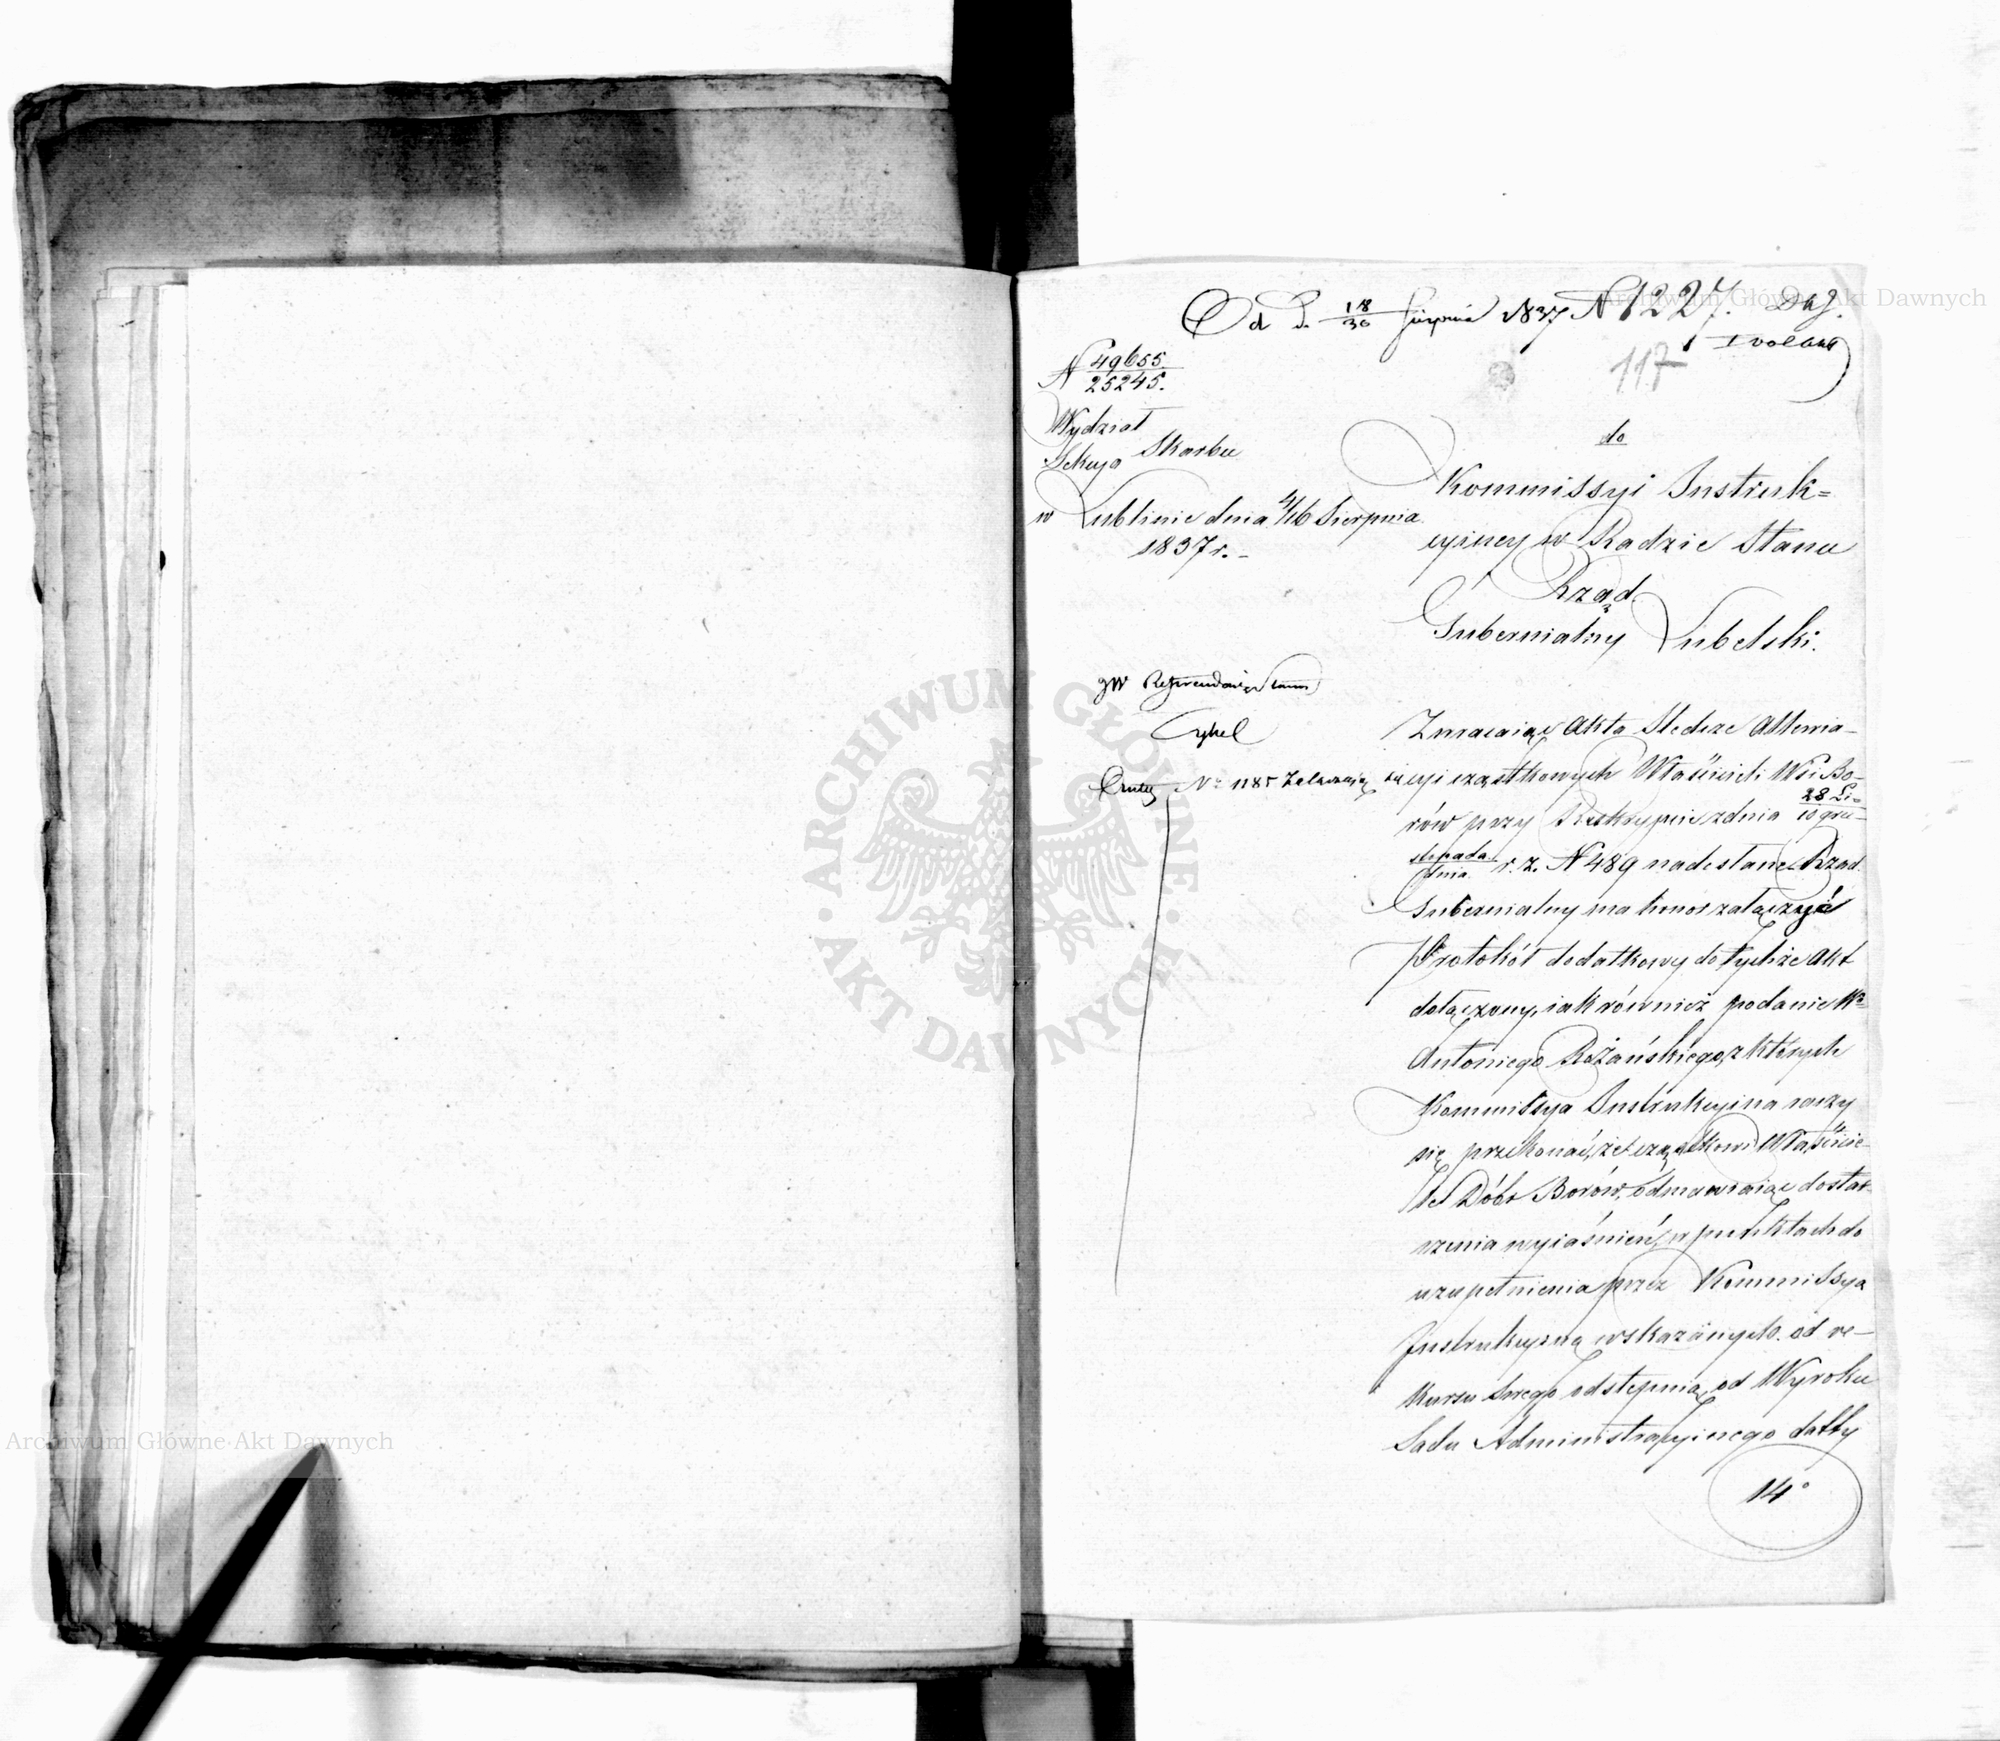 Od d. 18/30 Sierpnia 1837 N 1227. Daj.
1 volant
117
N 49655/25245.
Wydział
Sekcya Skarbu
w Lublinie dnia 4/16 Sierpnia
1837 r. -
do
Kommissyi Instruk=
cyiney w Radzie Stanu
Rząd
Gubernialny Lubelski.
JW Referendarz Stanu
Cykel
N° 1185
Zwracaiąc Akta Śledcze
cyi cząstkowych Właścicieli Wsi Bo-
rów przy Reskrypcie z dnia 28 Li-/10 gru-
stopada/dnia r. z. N 489 nadesłane Rząd
Gubernialny ma honor załączyć
Protokół dodatkowy do tychże Akt
dołączony, iak również podanie W°
Antoniego Różańskiego, z których
Kommissya Instrukcyina raczy
się przekonać, że cząstkowi Właście-
le Dóbr Borów, odmawiaiąc dostar-
czenia wyiaśnień, w punktach do
uzupełnienia przez Kommissyą
Instrukcyiną wskazanych. od re-
kursu swego odstępuią, od Wyroku
Sądu Administracyinego
14°
ARCHIWUM GŁÓWNE · AKT DAWNYCH ·
Archiwum Główne Akt Dawnych
Archiwum Główne Akt Dawnych